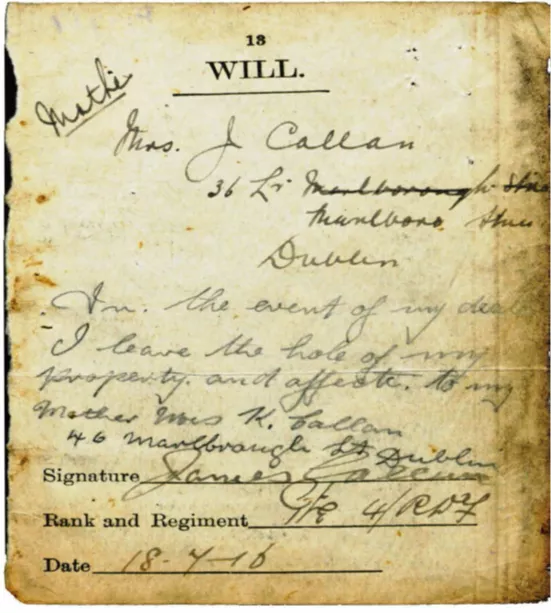 13
WILL.
Mothe
Mrs. J Callan
36 Lr Marlborough
Marlboro
Dublin
In. the event of my deat
I leave the hole of my
property. and affects. to my
Mother Mrs K. Callan
46 Marlbrough St Dublin
Signature James Callan
Rank and Regiment Pte 4/RDF
Date 18-7-16